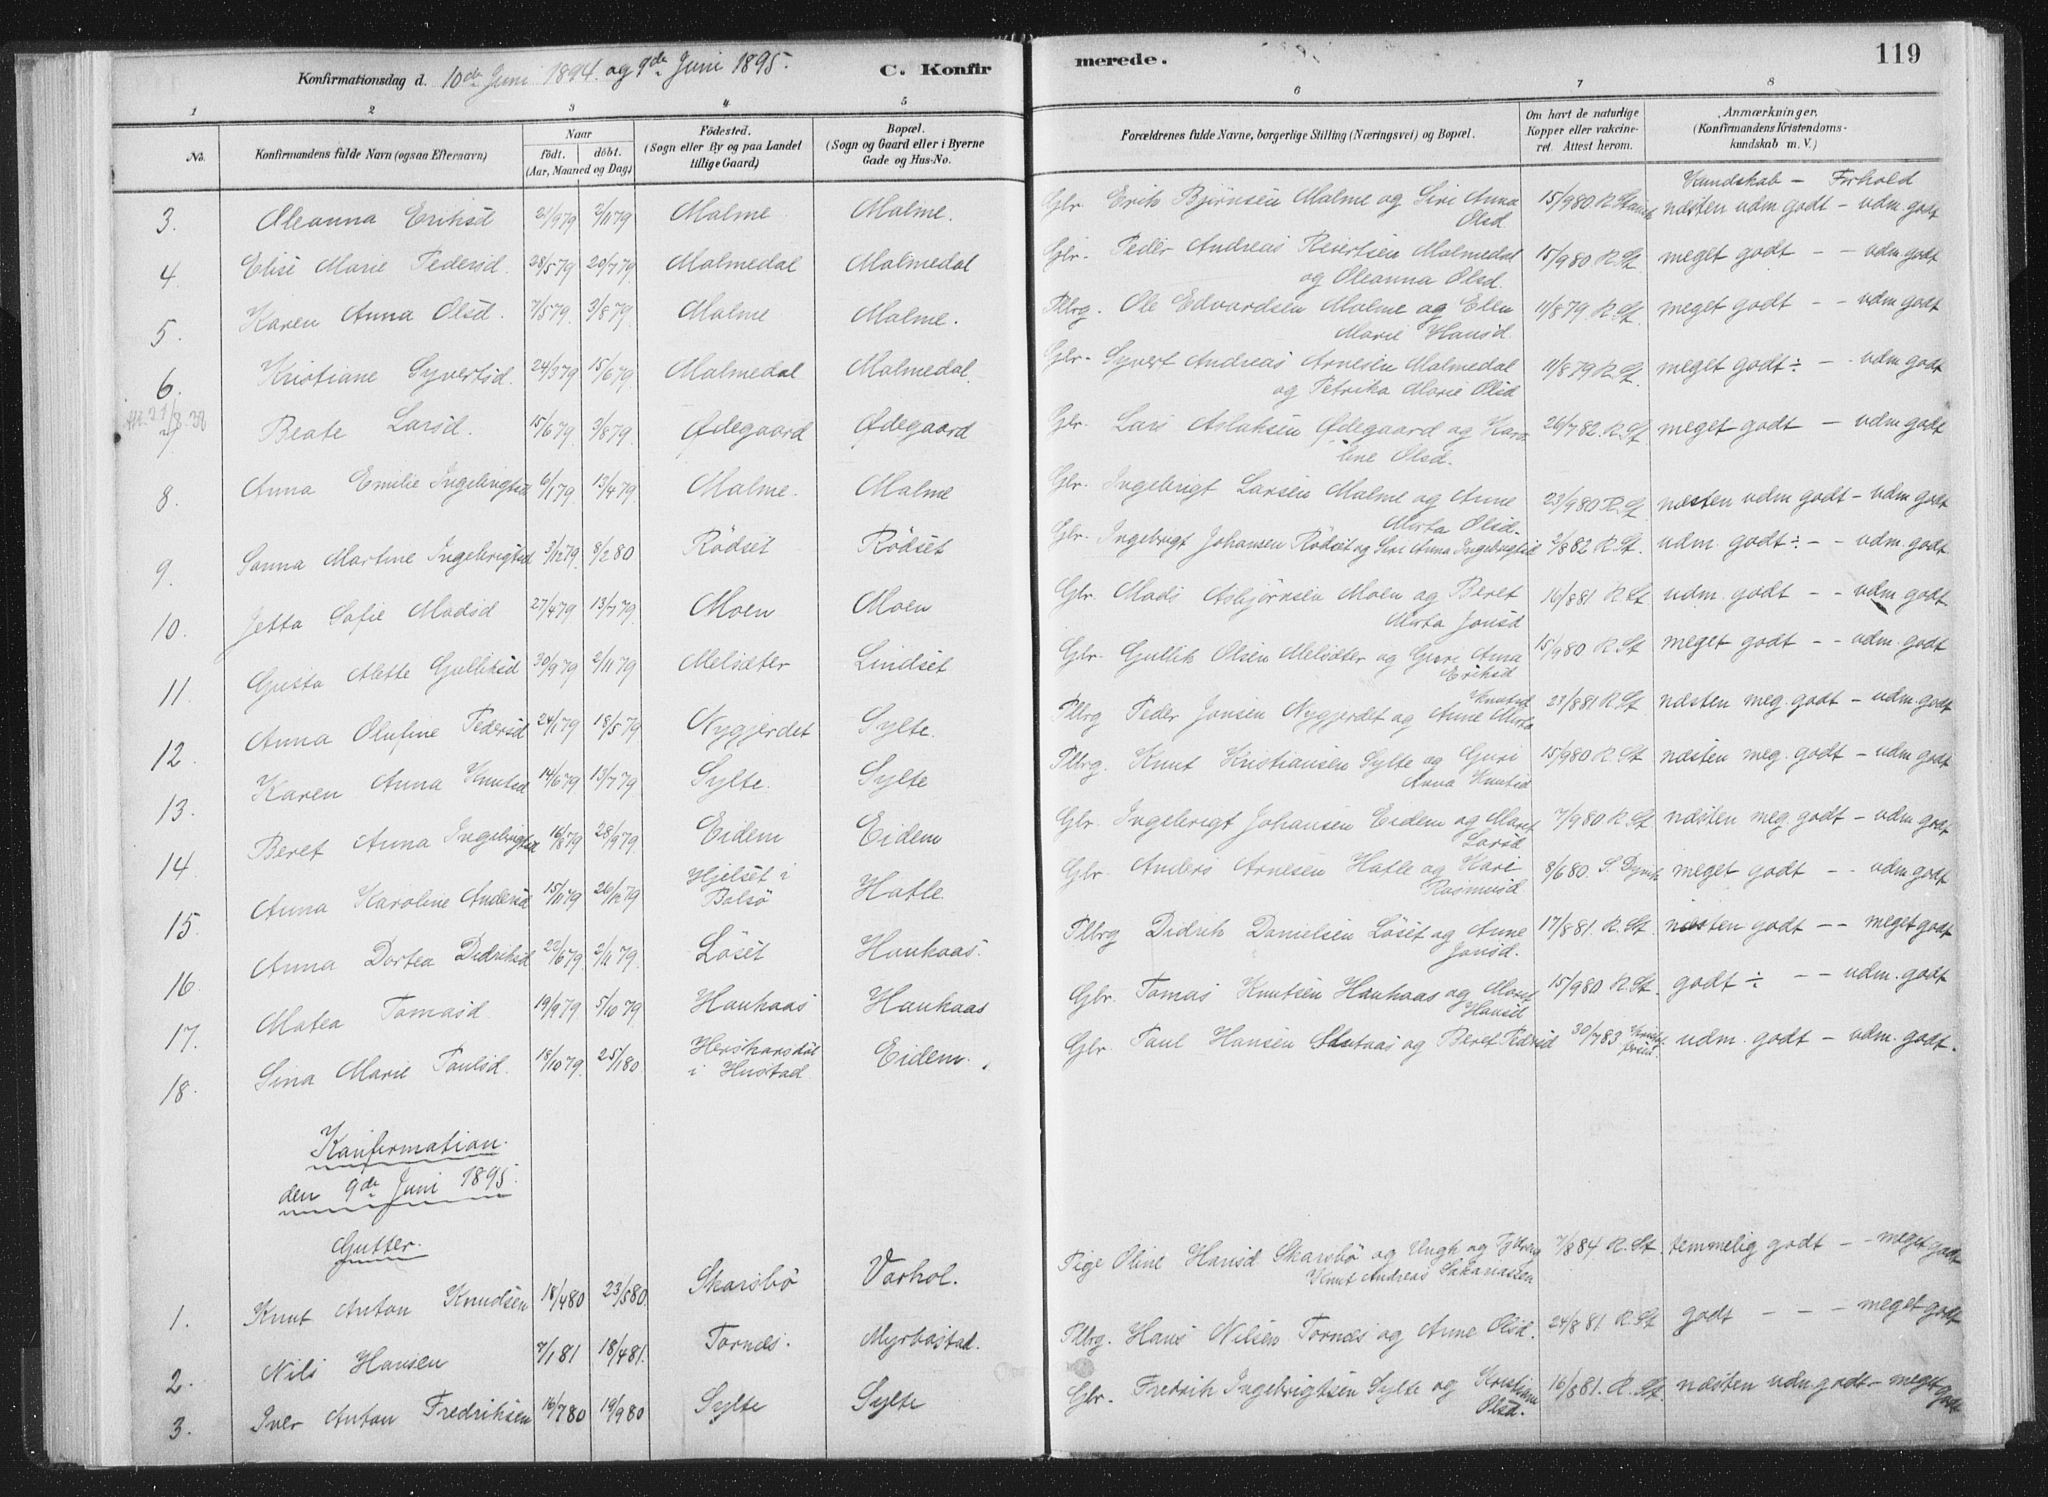 Konfirmationsdag d. 10de Juni 1894. og 9de Juni 1895. C. Konfir merede. 119
1 2 3 4 5 6 7 8
No. Konfirmandens fulde Navn (ogsaa Efternavn) Naar født. døbt. (Aar, Maaned og Dag) Fødested. (Sogn eller By og paa Landet tillige Gaard) Bopæl. (Sogn og Gaard eller i Byerne Gade og Hus-No. Forældrenes fulde Navne, borgerlige Stilling (Næringsvei) og Bopæl. Om havt de naturlige Kopper eller vakcineret. Attest herom. Anmærkninger. (Konfirmandens Kristendomskundskab m. V.)
Kundskab — Forhold
3. Oleanna Eriksd 21/9 79 2/11 79 Malme Malme. Glr. Erik Bjørnsen Malme og Siri Anna Olsd 15/9 80 R. næsten udm godt – udm. godt
4 Elise Marie Pedersd. 28/5 79 20/7 79 Malmedal Malmedal Glr. Peder Andreas Reiertsen Malmedal og Oleanna Olsd. 15/9 80 R. St. meget godt – – udm. godt
5. Karen Anna Olsd. 7/5 79. 3/8 79. Malme Malme. Plbrg. Ole Edvardsen Malme og Elen Marie Hansd. 11/8 79. R. St. meget godt – – udm. godt
6. Kristiane Syvertsd. 24/3 79 15/6 79 Malmedal Malmedal Glr. Syvert Andreas Arnesen Malmedal og Petrika Marie Olsd 11/8 79 R. St. meget godt ÷ – – udm. godt
7 Beate Larsd. 15/6 79 3/8 79. Ødegaard Ødegaard Glr. Lars Aslaksen Ødegaard og Karoline Olsd. 26/7 82. R. St meget godt – – udm. godt
8. Anna Emilie Ingebrigtsd 6/1 79. 13/4 79. Malme. Malme Glr. Ingebrigt Larsen Malme og Anne Marta Olsd. 23/9 80 R. St. næsten udm godt – udm. godt
9. Sanna Martine Ingebrigtsd 3/12 79. 8/2 80 Rødset Rødset Glr. Ingebrigt Johansen Rødset og Siri Anna Ingebrigtsd 2/8 82 R. St. udm. godt ÷ – – udm. godt
10. Jetta Sofie Madsd 27/4 79 13/7 79. Moen Moen Glr. Mads Asbjørnsen Moen og Beret Marta Jonsd 16/8 81 R. St. udm. godt – – udm. godt
11. Gusta Alette Gulliksd 30/9 79 2/11 79 Melsæter Lindset Glr. Gullik Olsen Melsæter og Guri Anna Eriksd 15/9 80 R. St meget godt – – udm. godt
12. Anna Olufine Pedersd 24/1 79 18/5 79 Nygjerdet Sylte. Plbrg Peder Jonsen Nygjerdet og Anne Marta Knutsd 23/8 81 R. St. næsten meg. godt – udm. godt
13. Karen Anna Knutsd 14/6 79 13/7 79 Sylte. Sylte Plbrg. Knut Kristiansen Sylte og Guri Anna Knutsd 15/9 80 R. St næsten meg. godt – udm. godt
14 Beret Anna Ingebrigtsd 16/8 79 28/9 79. Eidem Eidem Glr. Ingebrigt Johansen Eidem og Maret Larsd 7/9 80 R. St. næsten meg. godt – udm. godt
15. Anna Karoline Andersd 15/10 79 26/12 79 Hjelset i Bolsø Hatle. Glr. Anders Arnesen Hatle og Kari Rasmusd 8/6 80. S. meget godt – – udm. godt
16 Anna Dortea Didriksd 22/6 79. 2/11 79. Løset Haukaas. Plbrg Didrik Danielsen Løset og Anne Jonsd. 17/8 81. R. St. næsten godt – – meget godt
17. Matea Tomasd. 19/9 79 5/10 79 Haukaas Haukaas Glr. Tomas Knutsen Haukaas og Marit Hansd 15/9 80 R. St. godt ÷ – – udm. godt
18. Sina Marie Paulsd. 18/10 79. 25/1 80 Herskarsdal i Hustad Eidem. Glr. Paul Hansen og Beret Pedersd 30/7 83 udm. godt – udm. godt.
Konfirmation
den 9de Juni 1895.
Gutter.
1. Knut Anton Knudsen 18/4 80 23/5 80. Skarsbø Varhol. Pige Oline Hansd Skarsbø og Ungk og Knut Andreas Sakariassen 7/8 84 R. St. temmelig godt – – meget godt
2. Nils Hansen 7/1 81 18/4 81. Tornes. Myrbostad. Plbrg. Hans Nilsen Tornes og Anne Olsd. 24/8 81. R. St godt – – – meget godt
3. Iver Anton Fredriksen 16/7 80 19/9 80 Sylte Sylte Glr. Fredrik Ingebrigtsen Sylte og Kristiane Olsd. 16/8 81. R. St. næsten udm. godt – meget godt